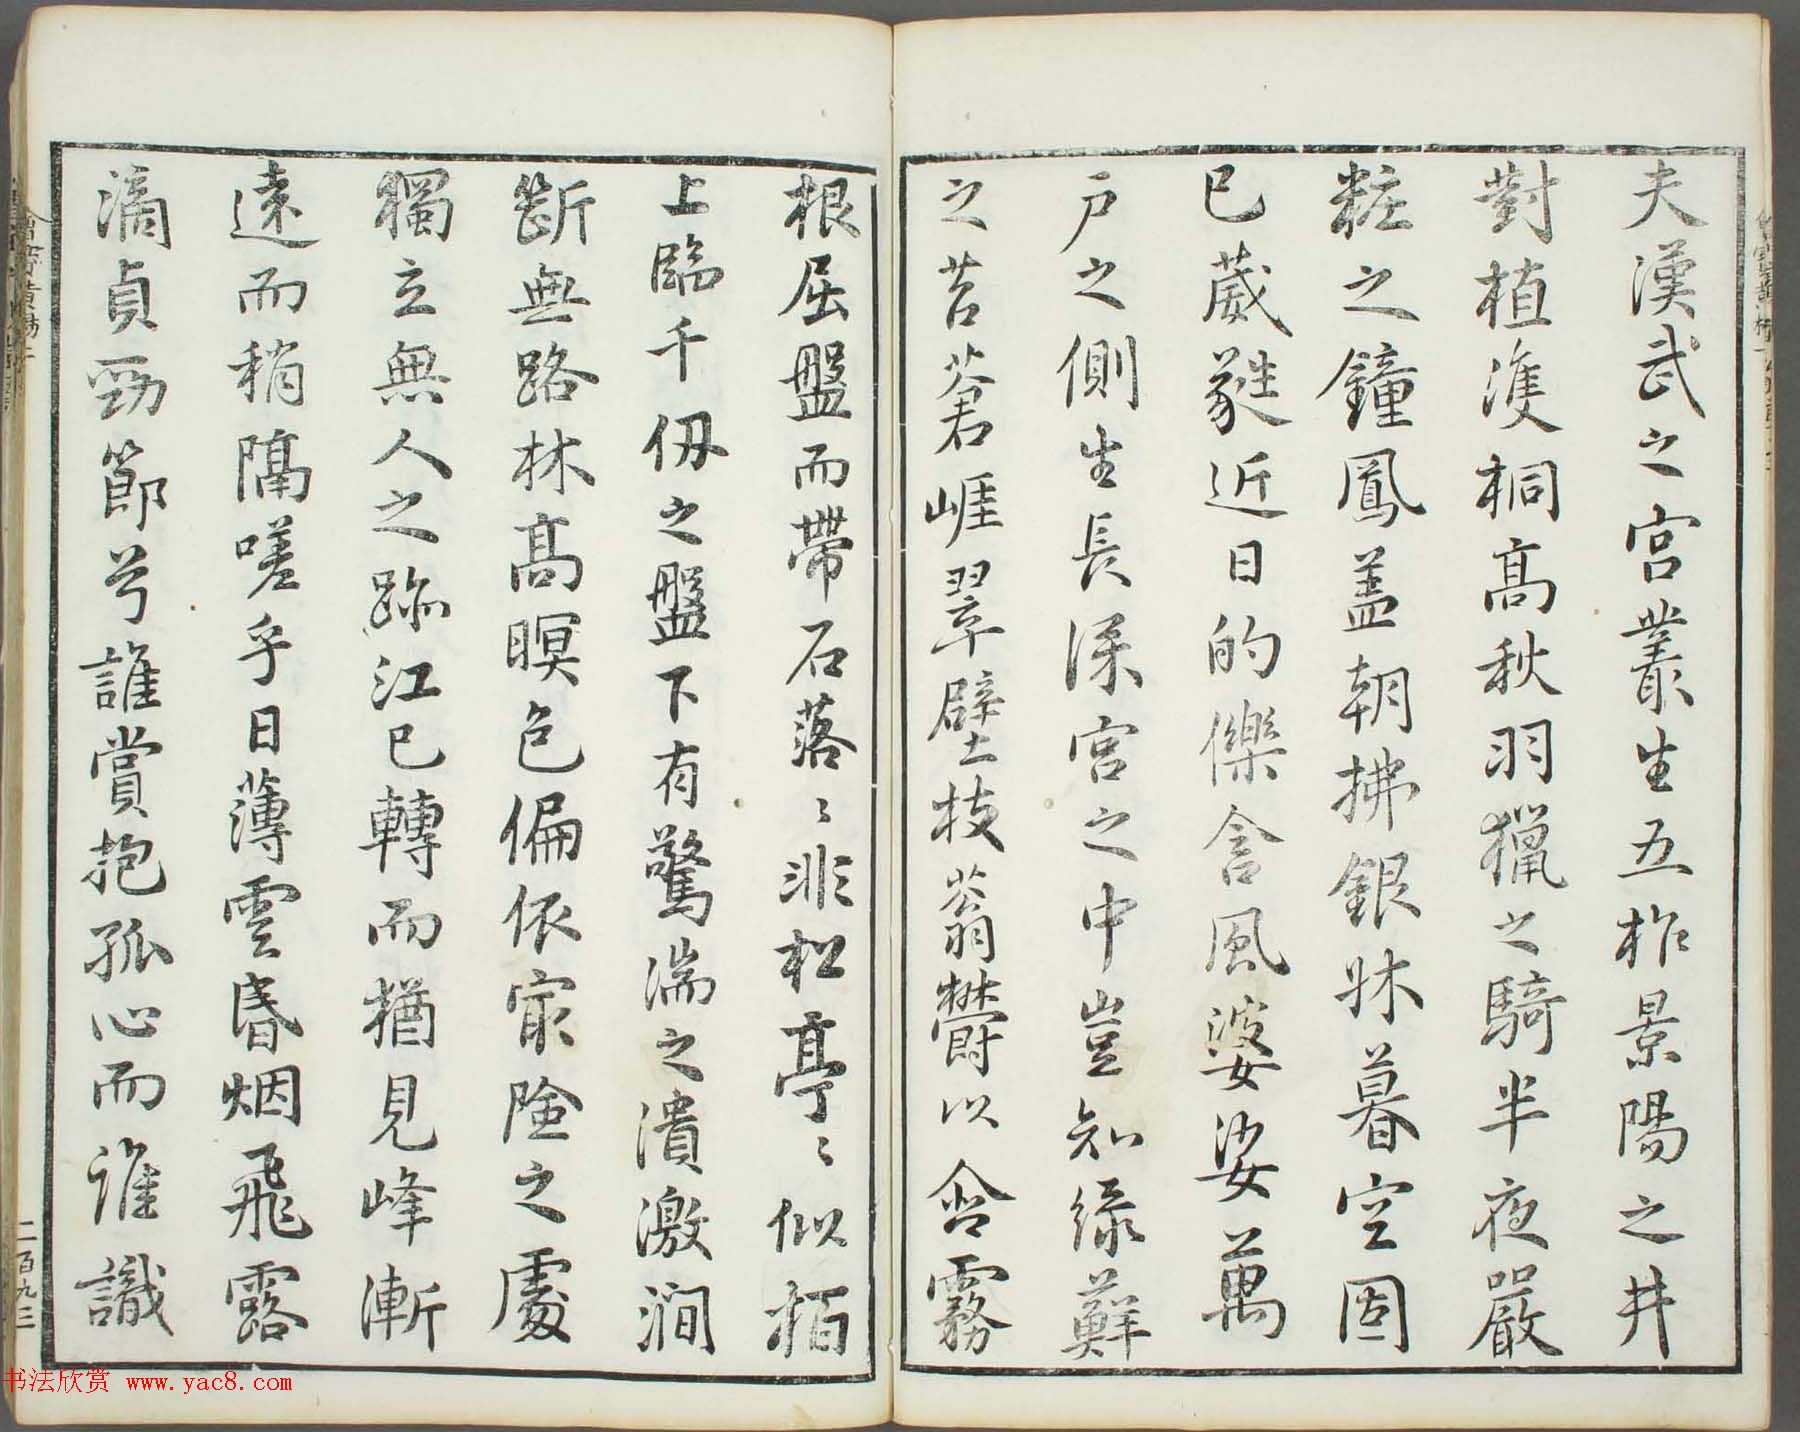 夫漢武之宮叢生五柞景陽之井
對植雙桐高秋羽獵之騎半夜嚴
粧之鐘鳳盖朝拂銀牀暮空固
已葳蕤近日的儝含風婆娑萬
戶之側生長深宮之中豈知綠蘚
之苔蒼崖翠壁枝蓊欝以含霧
根屈盤而帶石落〻非松亭〻似栢
上臨千仞之盤下有驚湍之潰激澗
斷無路林高暝色偏依㝡險之處
獨立無人之跡江已轉而猶見峰漸
遠而稍隔嗟乎日薄雲昏烟飛露
滴貞勁節兮誰賞抱孤心而誰識
二百九三
书法欣赏 www.yac8.com